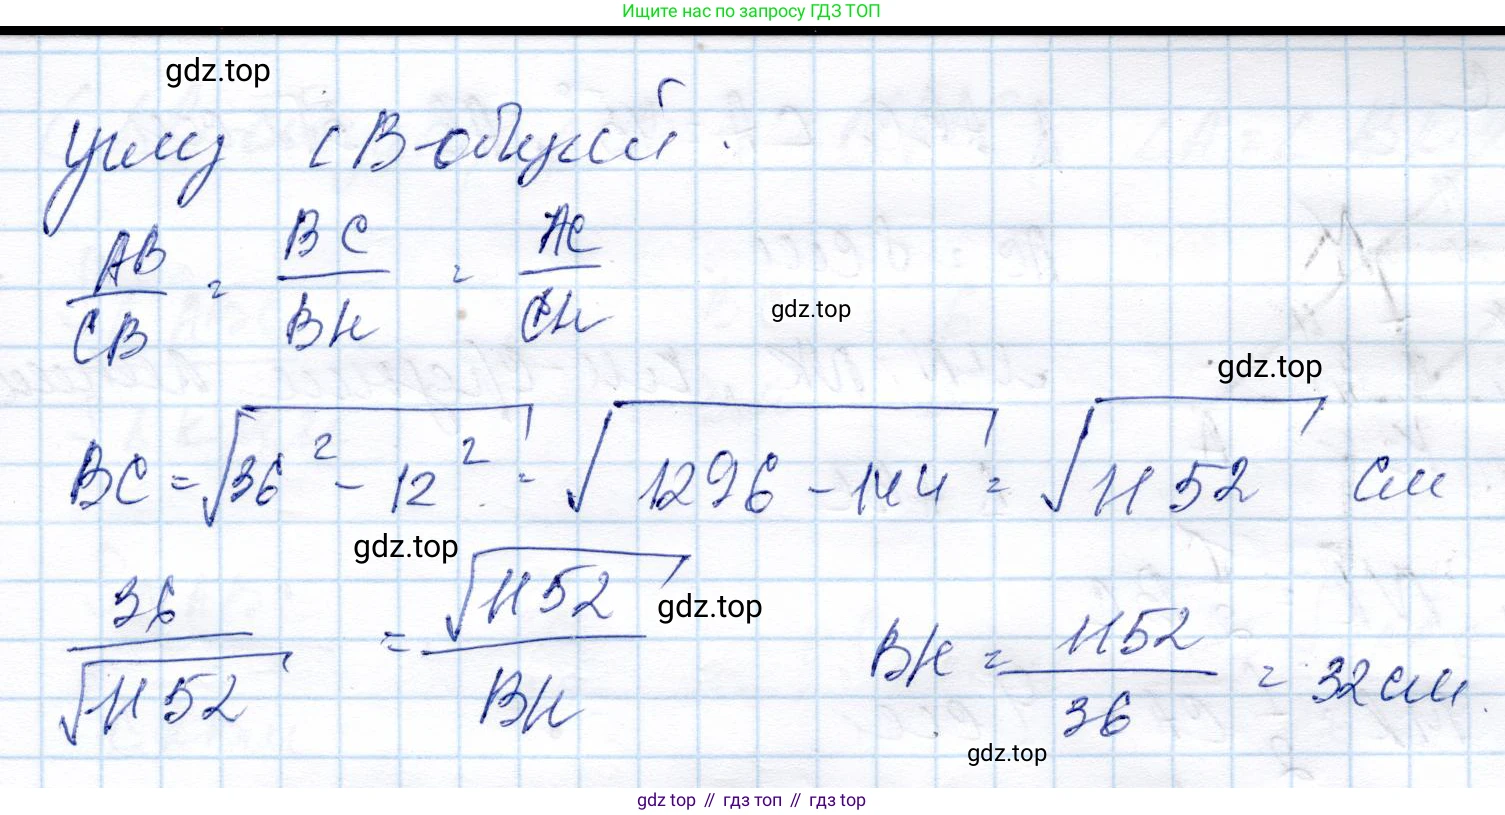 Ищите нас по запросу ГДЗ ТОП
gdz.top
углу ∠B-общий.
AB/CB = BC/BH = AC/CH
gdz.top
gdz.top
BC = √(36² - 12²) = √(1296 - 144) = √1152 см
gdz.top
36/√1152 = √1152/BH
gdz.top
BH = 1152/36 = 32 см.
gdz.top
gdz top // гдз топ // гдз top